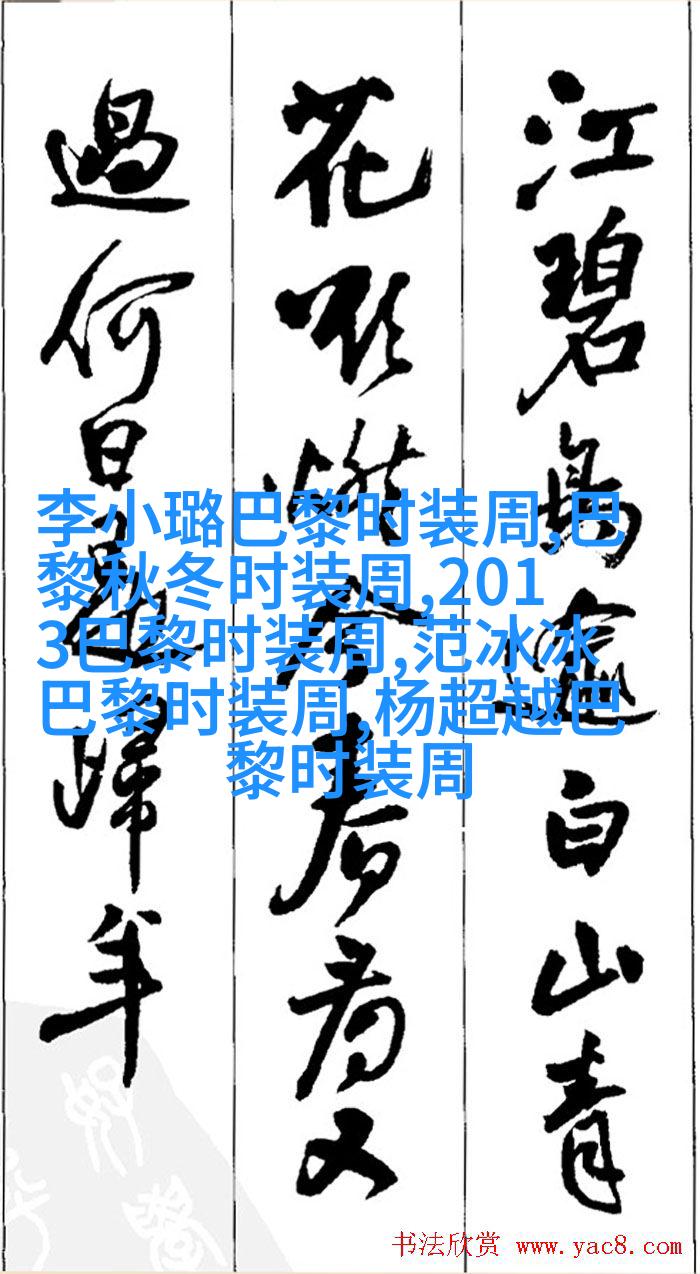 江碧鳥逾白山青
花欲燃今春看又
過何日是歸年
李小璐巴黎时装周,巴
黎秋冬时装周,201
3巴黎时装周,范冰冰
巴黎时装周,杨超越巴
黎时装周
书法欣赏 www.yac8.com